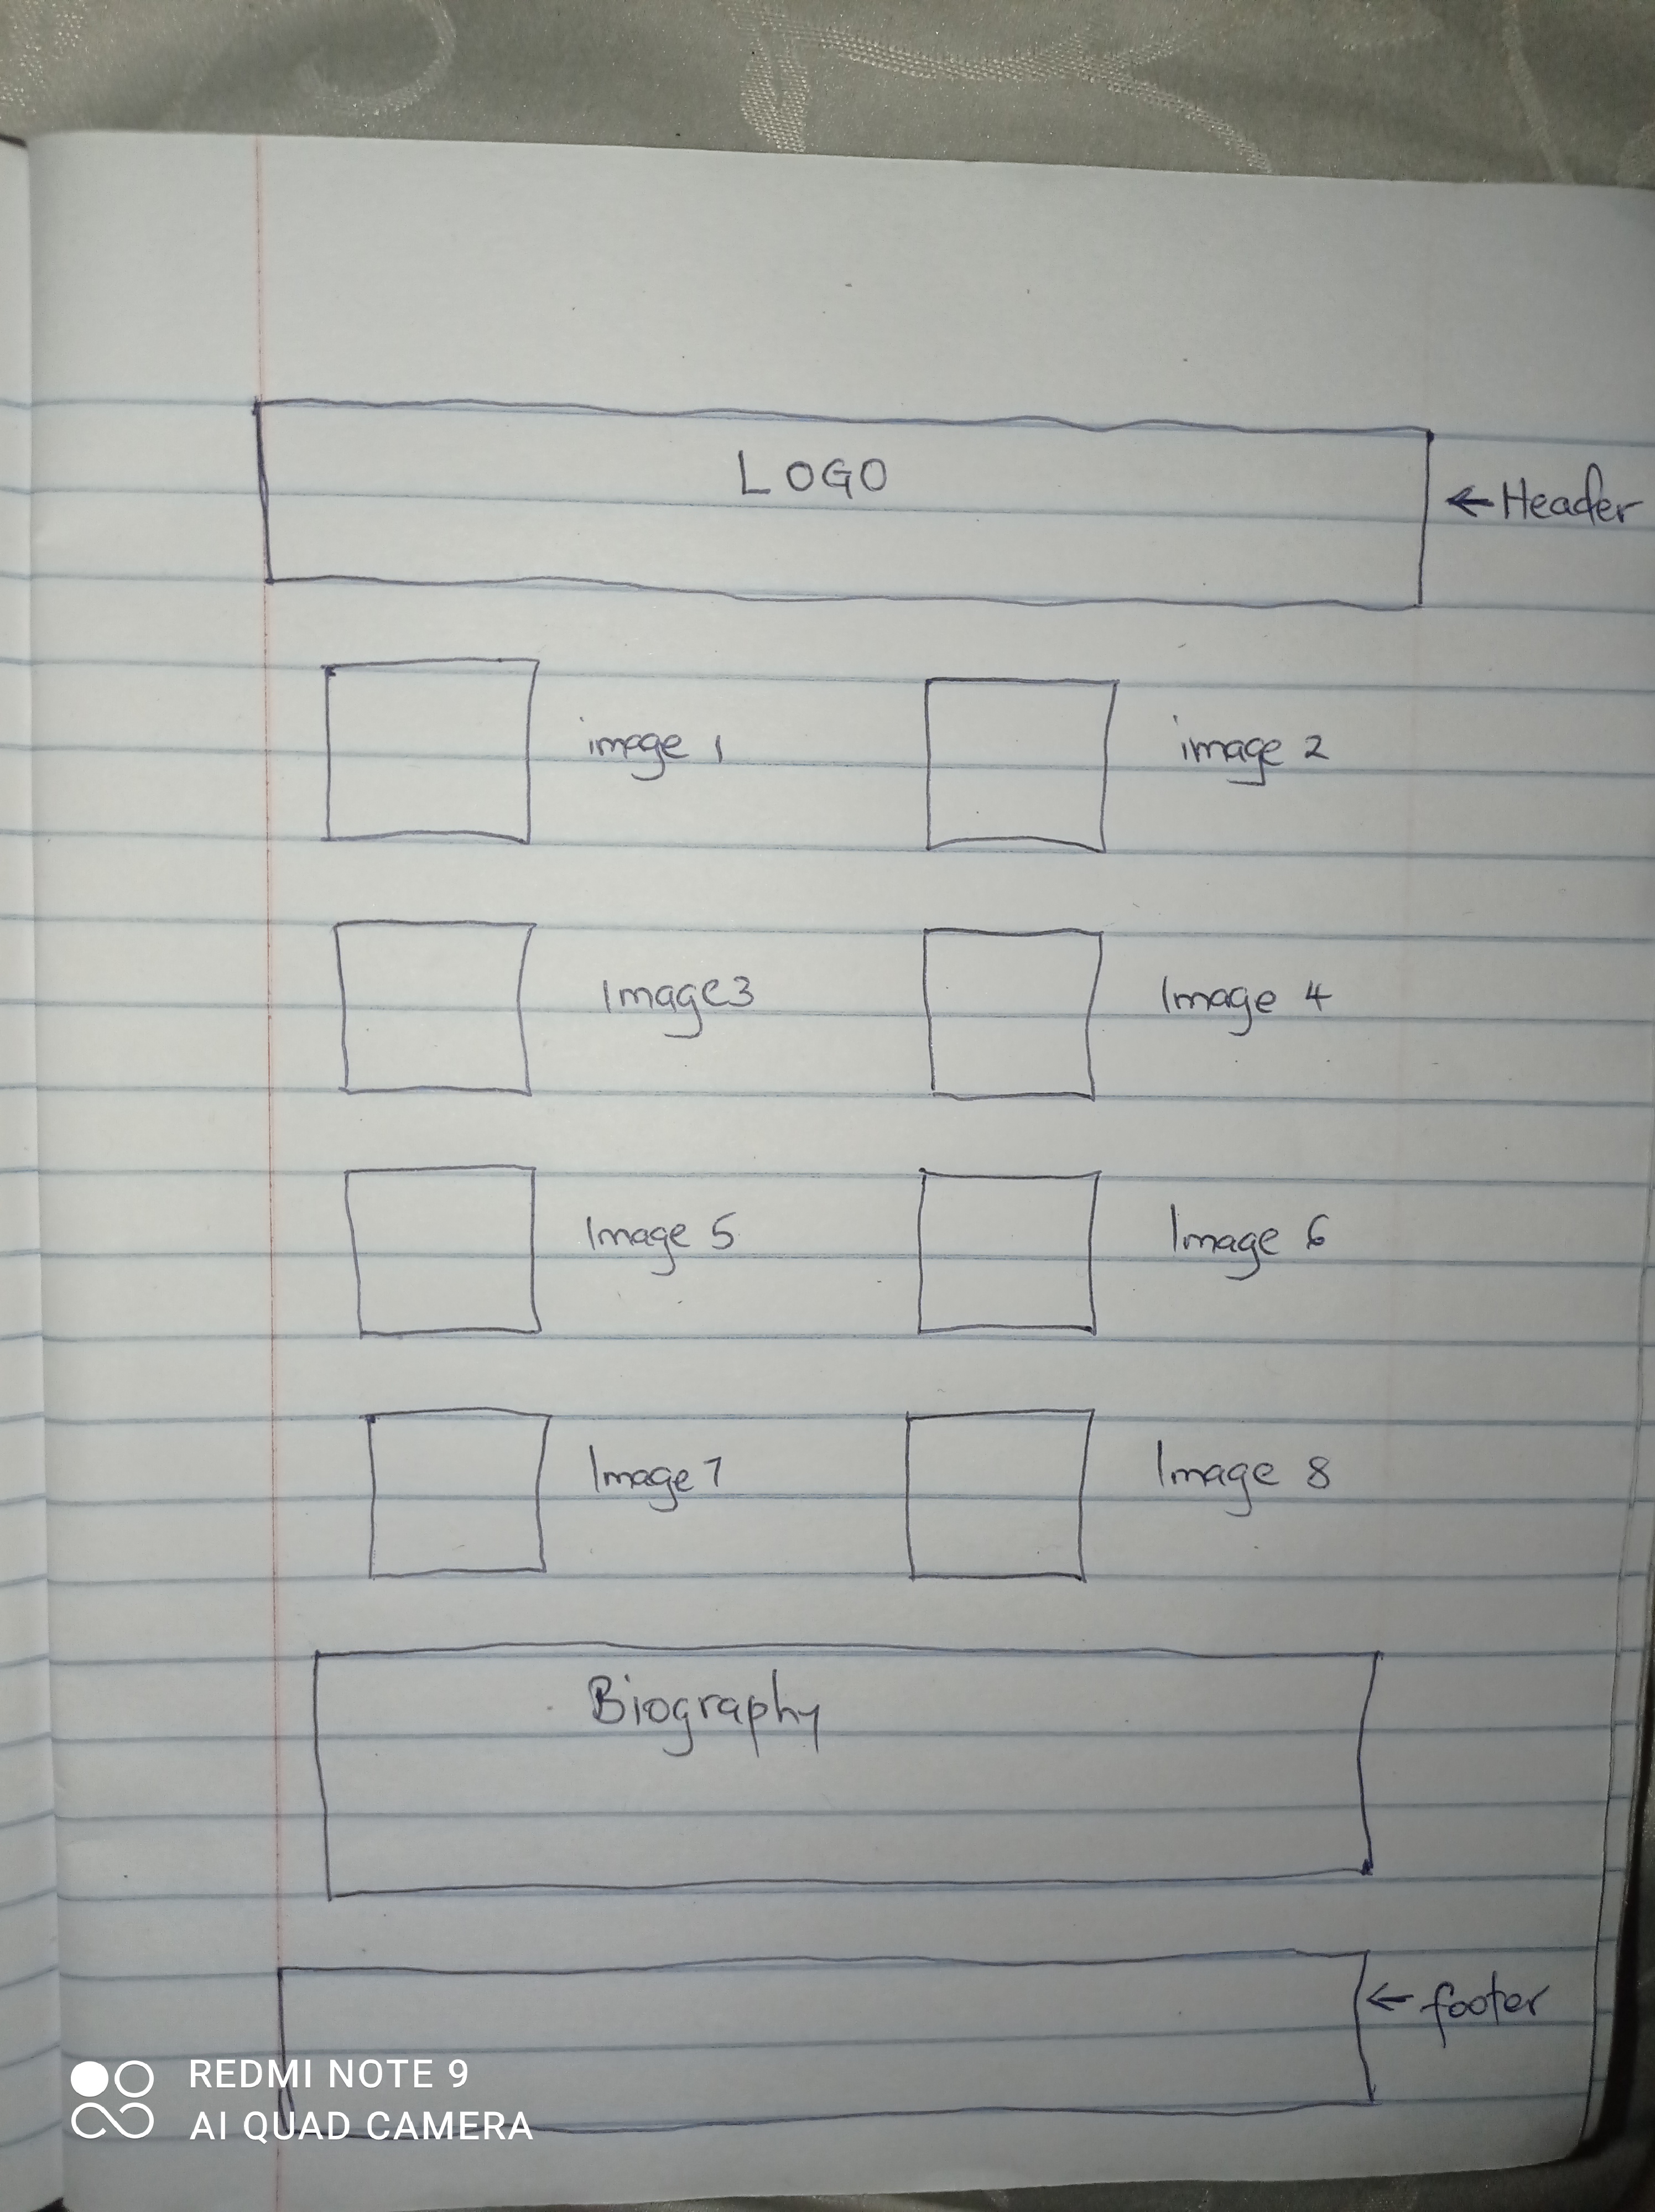 LOGO
← Header
image 1
image 2
Image3
Image 4
Image 5
Image 6
Image7
Image 8
Biography
← footer
REDMI NOTE 9
AI QUAD CAMERA